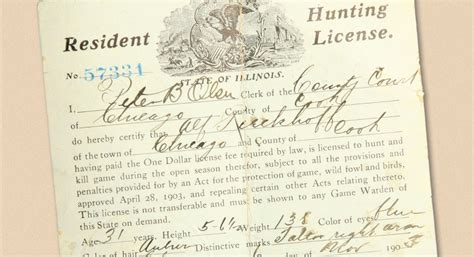 Resident Hunting License.
No. 57331
STATE OF ILLINOIS.
I, Peter B Olsen Clerk of the County Court
Chicago County of Cook
do hereby certify that Alf
of the town of Chicago and County of Cook
having paid the One Dollar license fee required by law, is licensed to hunt and
kill game during the open season therefor, subject to all the provisions and
penalties provided for by an Act for the protection of game, wild fowl and birds,
approved April 28, 1903, and repealing certain other Acts relating thereto.
This license is not transferable and must be shown to any Game Warden of
this State on demand.
Age 31 years, Height 5-6½ Weight 138 Color of eyes blue
Color of hair Auburn Distinctive marks right arm
day of Nov 1903